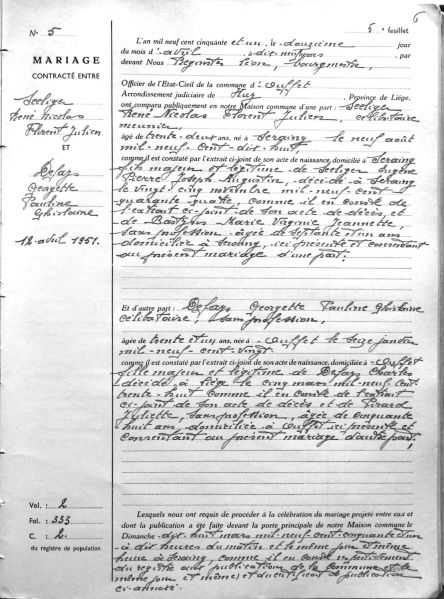 6
N° 5
5e feuillet
MARIAGE
CONTRACTÉ ENTRE
Seeliger
René Nicolas
Florent Julien
ET
Defays
Georgette
Pauline
Ghislaine
12 avril 1951.
L'an mil neuf cent cinquante et un, le douzième jour
du mois d'avril, à dix-neuf heures, par
devant Nous Léon, bourgmestre,
Officier de l'Etat-Civil de la commune d'Ouffet
Arrondissement judiciaire de Huy, Province de Liège,
ont comparu publiquement en notre Maison commune d'une part : Seeliger
René Nicolas Florent Julien, célibataire
meunier,
âgé de trente-deux ans, né à Seraing le neuf août
mil-neuf-cent-dix-huit
comme il est constaté par l'extrait ci-joint de son acte de naissance, domicilié à Seraing
fils majeur et légitime de Seeliger Eugène
Pierre Joseph Augustin, décédé à Seraing
le vingt cinq novembre mil-neuf-cent
quarante-quatre, comme il en conste de
l'extrait ci-joint de son acte de décès, et
de Marie Virginie Jeannette,
sans profession, âgée de septante et un ans
domiciliée à Seraing, ici présente et consentant
au présent mariage d'une part.
Et d'autre part : Defays Georgette Pauline Ghislaine
célibataire, sans profession,
âgée de trente et un ans, née à Ouffet le seize janvier
mil-neuf-cent-vingt.
comme il est constaté par l'extrait ci-joint de son acte de naissance, domiciliée à Ouffet
fille majeur et légitime de Defays Charles
décédé à Liège le cinq mars mil-neuf-cent-
trente-huit comme il en conste de l'extrait
ci-joint de son acte de décès et de Pirard
Juliette, sans profession, âgée de cinquante
huit ans, domiciliée à Ouffet ici présente et
consentant au présent mariage d'autre part,
Vol. : 2
Fol. : 333
C. : 2.
du registre de population
Lesquels nous ont requis de procéder à la célébration du mariage projeté entre eux et
dont la publication a été faite devant la porte principale de notre Maison commune le
Dimanche dix-huit mars mil-neuf-cent-cinquante et un
à dix heures du matin et le même jour et même
heure à Seraing comme il en conste respectivement
du registre aux publications de la commune et le
même jour et même et du certificat de publication
ci-annexé.